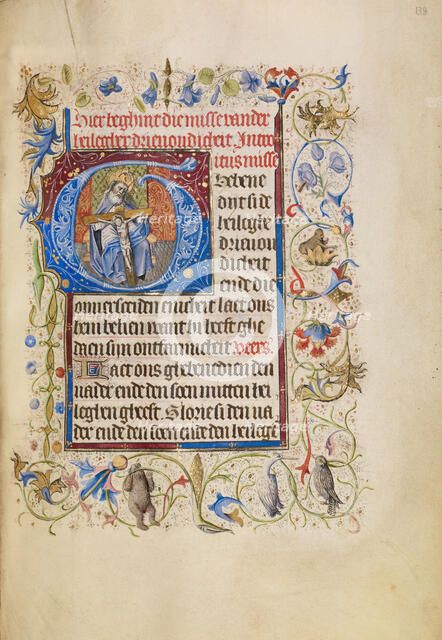 133
Hier beghint die misse vander
heiligher drievondicheit Intro
itus misse
Ghebene
dyt si de
heilighe
drievon
dicheit
ende die
onverscheiden eincheit laet ons
hem belien want hi heeft ghe
daen sijn ontfarmicheit veers
Laet ons ghebenedien den
vader ende den soen mitten hei
leghen gheest Glorie si den va
der ende den soen ende den heileghe
Heritage
Heritage
Heritage
Heritage
Heritage
Heritage